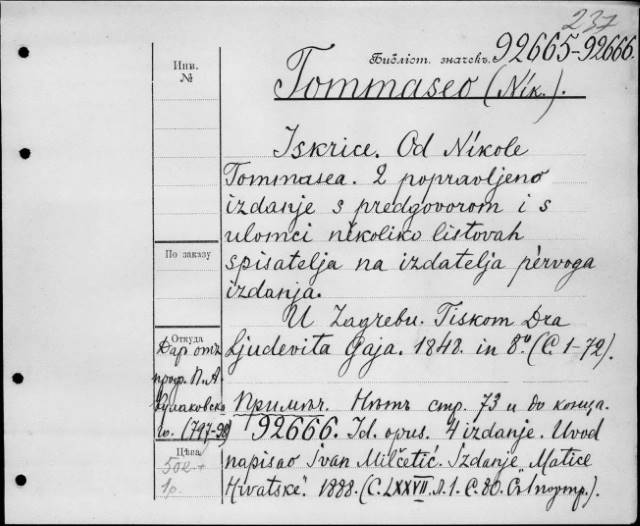 237
Библіот. значекъ. 92665-92666.
Инв.
№
Tommaseo (Nik.).
Iskrice. Od Nikole
Tommasea. 2 popravljeno
izdanje s predgovorom i s
ulomci nikoliko listovah
По заказу
spisatelja na izdatelja pèrvoga
izdanja.
U Zagrebu. Tiskom Dra
Откуда
Ljudevita Gaja. 1848. in 8º (С. 1-72).
Даръ отъ
проф. П. А.
Кулаковска
го. (797-98)
Примѣч. Нѣтъ стр. 73 и до конца.
92666. Id. opus. 4 izdanje. Uvod
Цѣна
50к +
1р.
napisao Ivan Milčetić. Izdanje „Matice
Hrvatske“. 1888. (С. LXXVII. Л. 1. С. 80. Съ 1 портр.).